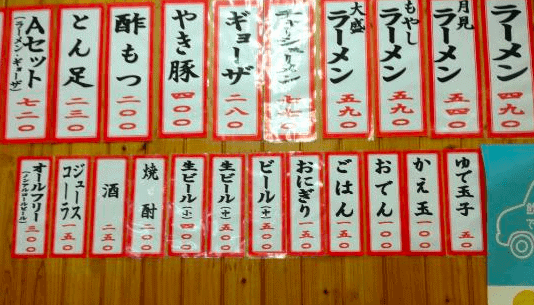 ラーメン 四九〇
月見ラーメン 五四〇
もやしラーメン 五九〇
大盛ラーメン 五九〇
ギョーザ 二八〇
やき豚 四〇〇
酢もつ 二〇〇
とん足 二三〇
Aセット(ラーメン・ギョーザ) 七二〇
ゆで玉子 五〇
かえ玉 一〇〇
おでん 一〇〇
ごはん 一五〇
おにぎり 一五〇
ビール(大) 五五〇
生ビール(中) 五〇〇
生ビール(小) 四〇〇
焼酎 二〇〇
酒 二五〇
コーラ ジュース 一五〇
オールフリー(ノンアルコールビール) 三〇〇